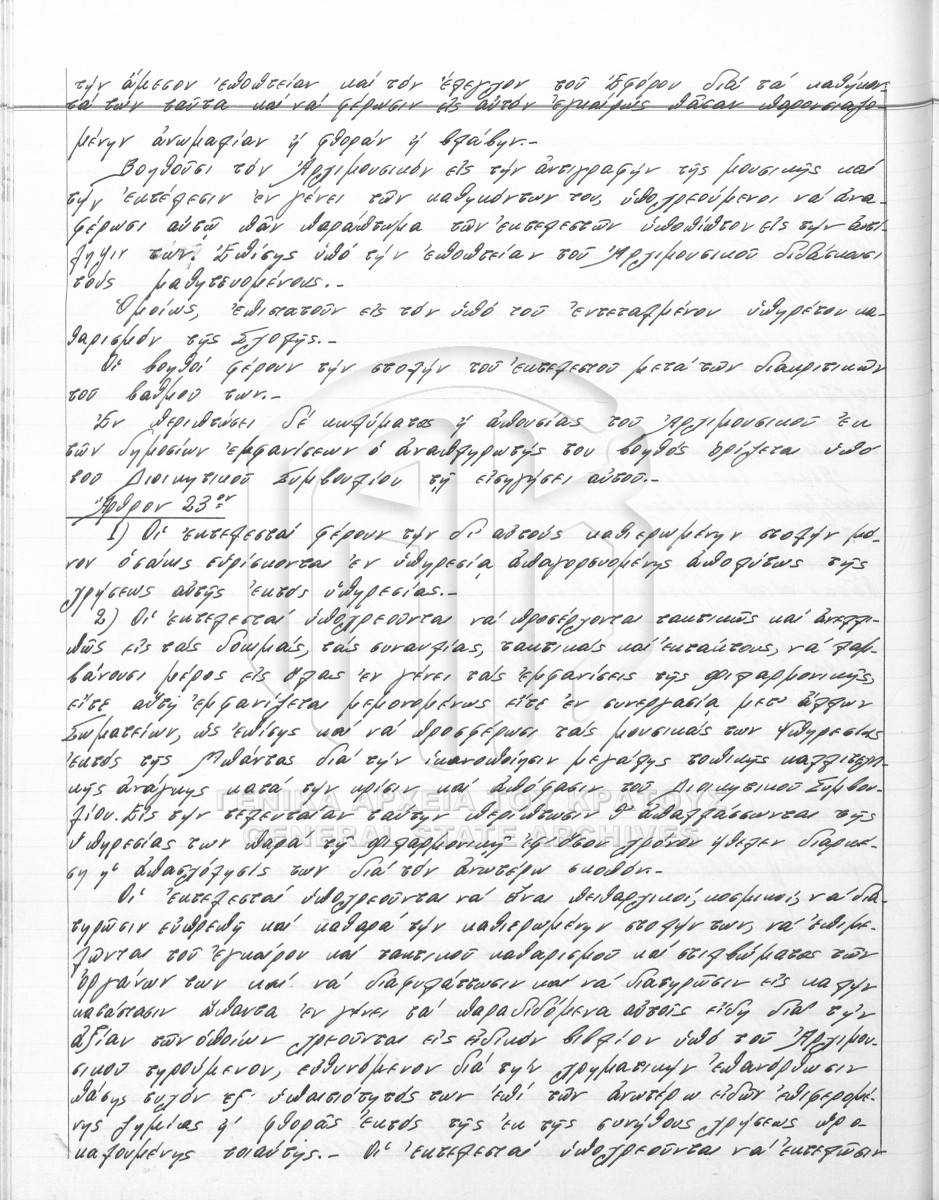 τήν ἄμεσον ἐποπτείαν καί τόν ἔλεγχον τοῦ Ἐφόρου διά τά καθήκον-
τά των ταῦτα καί νά φέρωσιν εἰς αὐτόν ἐγκαίρως πᾶσαν παρουσιαζο-
μένην ἀνωμαλίαν ἤ φθοράν ἤ βλάβην.-
Βοηθοῦσι τόν Ἀρχιμουσικόν εἰς τήν ἀντιγραφήν τῆς μουσικῆς καί
τήν ἐκτέλεσιν ἐν γένει τῶν καθηκόντων του, ὑποχρεούμενοι νά ἀνα-
φέρωσι αὐτῷ πᾶν παράπτωμα τῶν ἐκτελεστῶν ὑποπίπτον εἰς τήν ἀντί-
ληψιν των. Ἐπίσης ὑπό τήν ἐποπτείαν τοῦ Ἀρχιμουσικοῦ διδάσκουσι
τούς μαθητευομένους.-
Ὁμοίως, ἐπιστατοῦν εἰς τόν ὑπό τοῦ ἐντεταλμένου ὑπηρέτου κα-
θαρισμόν τῆς Σχολῆς.-
Οἱ βοηθοί φέρουν τήν στολήν τοῦ ἐκτελεστοῦ μετά τῶν διακριτικῶν
τοῦ βαθμοῦ των.-
Ἐν περιπτώσει δέ κωλύματος ἤ ἀπουσίας τοῦ Ἀρχιμουσικοῦ ἐκ
τῶν δημοσίων ἐμφανίσεων ὁ ἀναπληρωτής του βοηθός ὁρίζεται ὑπό
τοῦ Διοικητικοῦ Συμβουλίου τῇ εἰσηγήσει αὐτοῦ.-
Ἄρθρον 23ον
1) Οἱ ἐκτελεσταί φέρουν τήν δι' αὐτούς καθιερωμένην στολήν μό-
νον ὁσάκις εὑρίσκονται ἐν ὑπηρεσίᾳ ἀπαγορευομένης ἀπολύτως τῆς
χρήσεως αὐτῆς ἐκτός ὑπηρεσίας.-
2) Οἱ ἐκτελεσταί ὑποχρεοῦνται νά προσέρχονται τακτικῶς καί ἀνελλι-
πῶς εἰς τάς δοκιμάς, τάς συναυλίας, τακτικάς καί ἐκτάκτους, νά λαμ-
βάνουσι μέρος εἰς ὅλας ἐν γένει τάς ἐμφανίσεις τῆς Φιλαρμονικῆς,
εἴτε αὕτη ἐμφανίζεται μεμονομένως εἴτε ἐν συνεργασίᾳ μετ' ἄλλων
Σωματείων, ὡς ἐπίσης καί νά προσφέρωσι τάς μουσικάς των ὑπηρεσίας
ἐκτός τῆς Μπάντας διά τήν ἱκανοποίησιν μεγάλης τοπικῆς καλλιτεχνι-
κῆς ἀνάγκης κατά τήν κρίσιν καί ἀπόφασιν τοῦ Διοικητικοῦ Συμβου-
λίου. Εἰς τήν τελευταίαν ταύτην περίπτωσιν θ' ἀπαλλάσσωνται τῆς
ὑπηρεσίας των παρά τῇ Φιλαρμονικῇ ἐφ' ὅσον χρόνον ἤθελεν διαρκέ-
ση ἡ ἀπασχόλησίς των διά τόν ἀνωτέρω σκοπόν.-
Οἱ ἐκτελεσταί ὑποχρεοῦνται νά εἶναι πειθαρχικοί, κοσμικοί, νά δια-
τηρῶσιν εὐπρεπῆ καί καθαρά τήν καθιερωμένην στολήν των, νά ἐπιμε-
λῶνται τοῦ ἐγκαίρου καί τακτικοῦ καθαρισμοῦ καί στιλβώματος τῶν
ὀργάνων των καί νά διαφυλάττωσιν καί νά διατηρῶσιν εἰς καλήν
κατάστασιν ἅπαντα ἐν γένει τά παραδιδόμενα αὐτοῖς εἴδη διά τήν
ἀξίαν τῶν ὁποίων χρεοῦνται εἰς εἰδικόν βιβλίον ὑπό τοῦ Ἀρχιμου-
σικοῦ τηρούμενον, εὐθυνόμενοι διά τήν χρηματικήν ἐπανόρθωσιν
πάσης ἐξ ὑπαιτιότητός των ἐπί τῶν ἀνωτέρω εἰδῶν ἐπιφερομέ-
νης ζημίας ἤ φθορᾶς ἐκτός τῆς ἐκ τῆς συνήθους χρήσεως προ-
καλουμένης τοιαύτης.- Οἱ ἐκτελεσταί ὑποχρεοῦνται νά ἐκτελῶσιν
ΓΕΝΙΚΑ ΑΡΧΕΙΑ ΤΟΥ ΚΡΑΤΟΥΣ
GENERAL STATE ARCHIVES